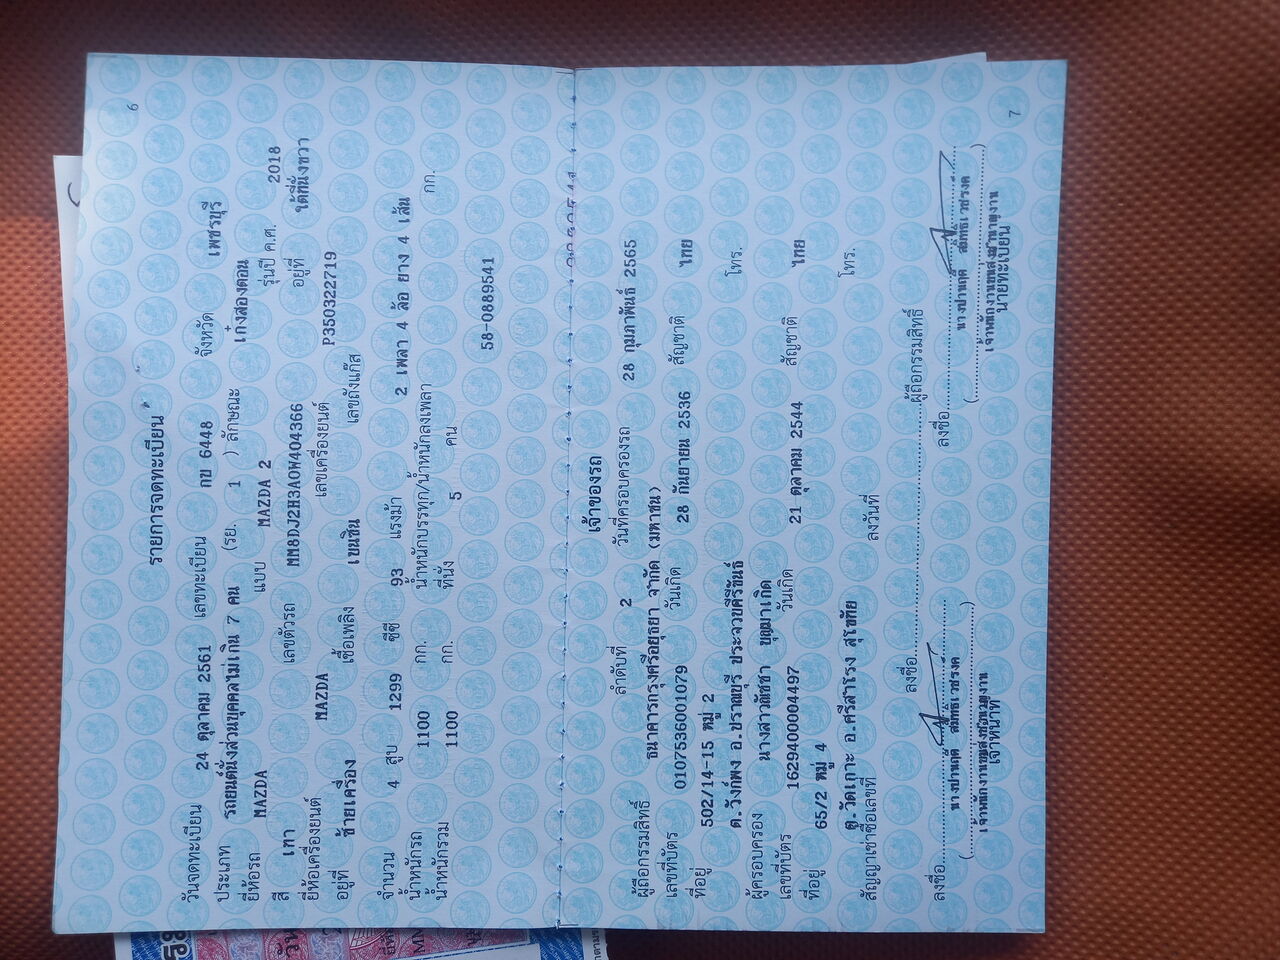 6
รายการจดทะเบียน
วันจดทะเบียน 24 ตุลาคม 2561 เลขทะเบียน กข 6448 จังหวัด เพชรบุรี
ประเภท รถยนต์นั่งส่วนบุคคลไม่เกิน 7 คน (รย. 1 ) ลักษณะ เก๋งสองตอน
ยี่ห้อรถ MAZDA แบบ MAZDA 2 รุ่นปี ค.ศ. 2018
สี เทา เลขตัวรถ MM8DJ2H3A0W404366 อยู่ที่ ใต้ที่นั่งขวา
ยี่ห้อเครื่องยนต์ MAZDA เลขเครื่องยนต์ P350322719
อยู่ที่ ซ้ายเครื่อง เชื้อเพลิง เบนซิน เลขถังแก๊ส
จำนวน 4 สูบ 1299 ซีซี 93 แรงม้า 2 เพลา 4 ล้อ ยาง 4 เส้น
น้ำหนักรถ 1100 กก. น้ำหนักบรรทุก/น้ำหนักลงเพลา กก.
น้ำหนักรวม 1100 กก. ที่นั่ง 5 คน
58-0889541
เจ้าของรถ
ลำดับที่ 2 วันที่ครอบครองรถ 28 กุมภาพันธ์ 2565
ผู้ถือกรรมสิทธิ์ ธนาคารกรุงศรีอยุธยา จำกัด (มหาชน)
เลขที่บัตร 0107536001079 วันเกิด 28 กันยายน 2536 สัญชาติ ไทย
ที่อยู่ 502/14-15 หมู่ 2 โทร.
ต.วังก์พง อ.ปราณบุรี ประจวบคีรีขันธ์
ผู้ครอบครอง นางสาวณัชชา บุญมาเกิด
เลขที่บัตร 1629400004497 วันเกิด 21 ตุลาคม 2544 สัญชาติ ไทย
ที่อยู่ 65/2 หมู่ 4 โทร.
ต.วัดเกาะ อ.ศรีสำโรง สุโขทัย
สัญญาเช่าซื้อเลขที่ ลงวันที่
ลงชื่อ ผู้ถือกรรมสิทธิ์
ลงชื่อ ลงชื่อ
เจ้าหน้าที่ นายทะเบียน
7